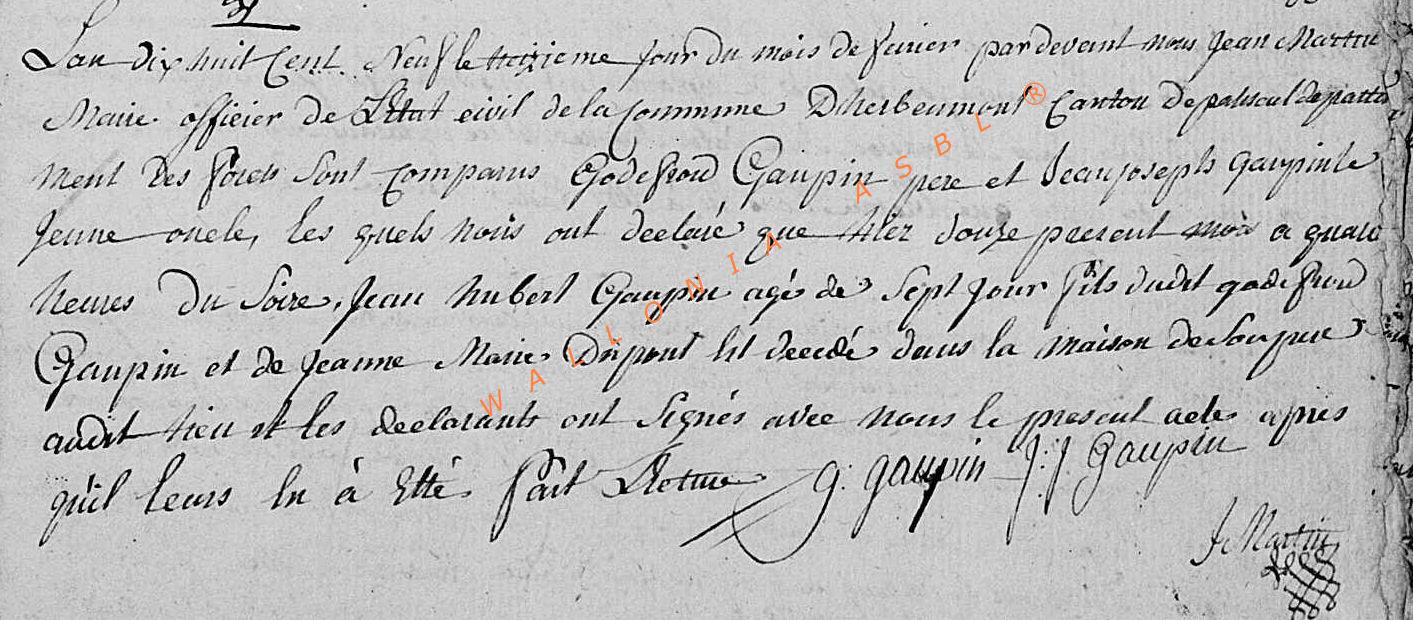 L'an dix huit Cent Neuf le treizieme jour du mois de fevrier pardevant nous Jean Martin
Maire officier de L'Etat civil de la Commune D'herbeumont Canton de paliseul departe
ment Des forets Sont Comparus Godefroid Gaupin pere et Jean joseph Gaupin le
Jeune oncle, les quels nous ont declaré que hier douze present mois a quatre
heures Du Soire, Jean hubert Gaupin agé de Sept Jour fils dudit godefroid
Gaupin et de Jeanne Marie Dupont Est decedé dans la maison de Son pere
audit lieu et les declarants ont Signés avec nous le present acte apres
qu'il leurs En à Etté fait Lecture G: Gaupin J: J Gaupin
J Martin
WALLONIA ASBL ®